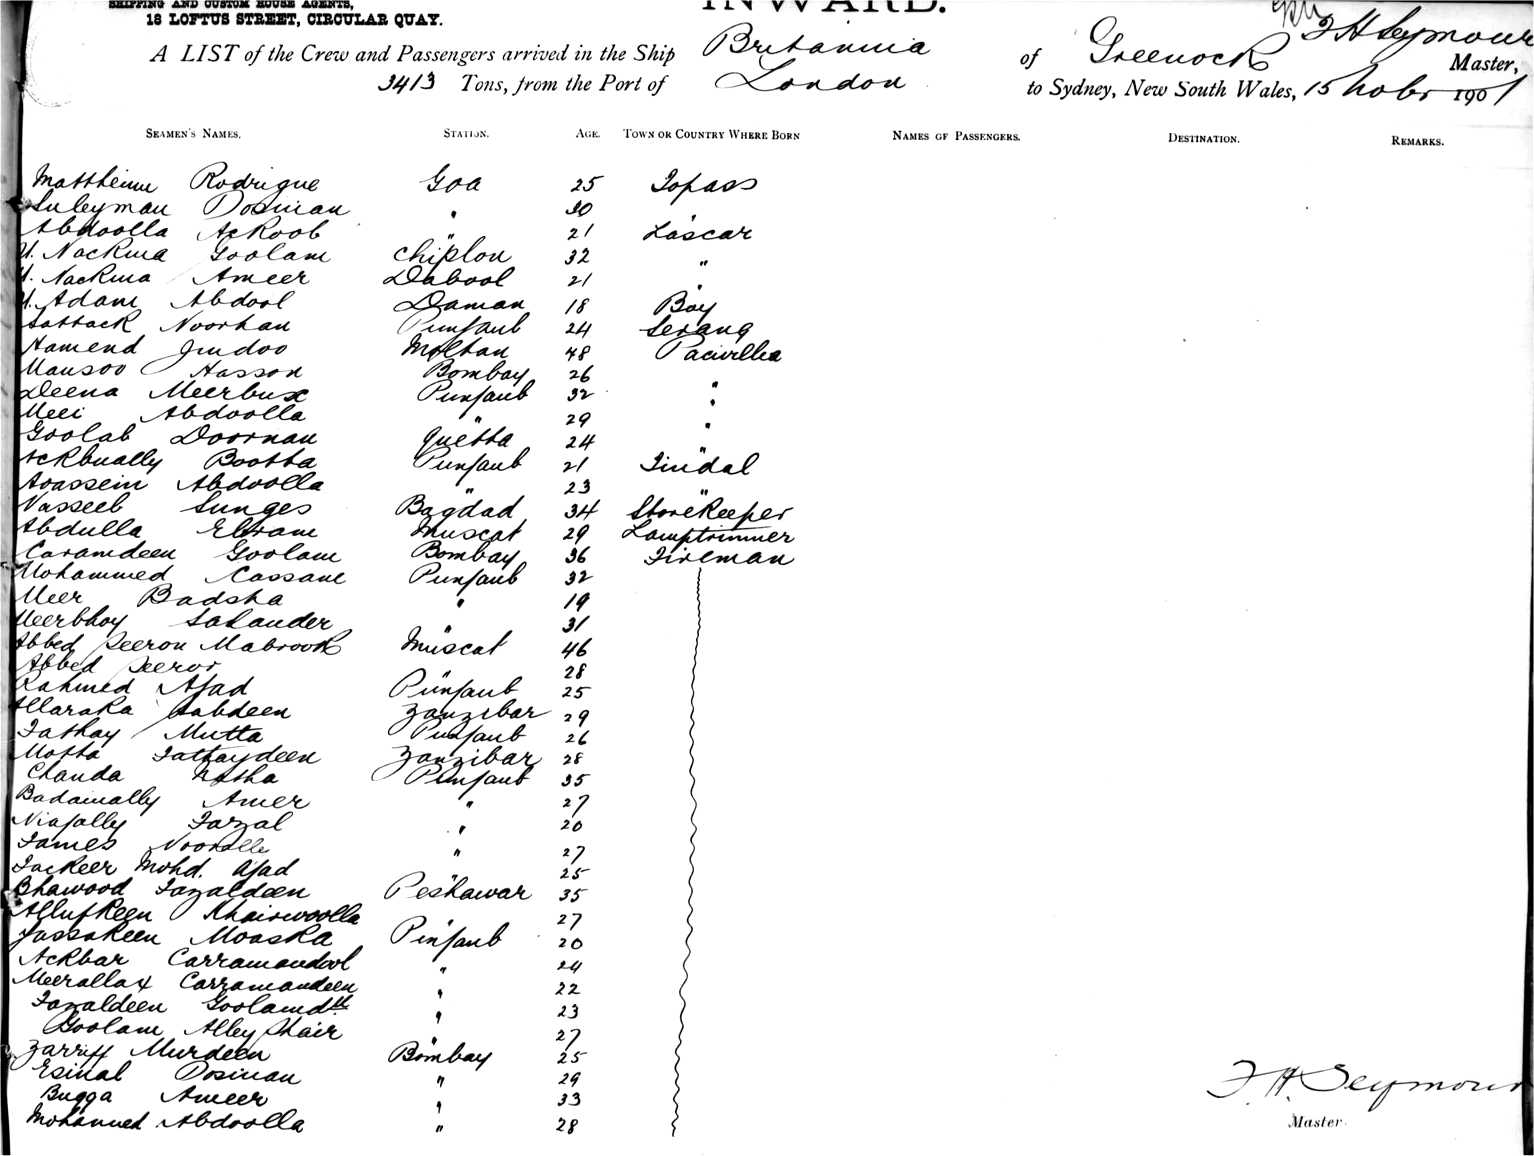 SHIPPING AND CUSTOM HOUSE AGENTS,
18 LOFTUS STREET, CIRCULAR QUAY.
INWARD.
A LIST of the Crew and Passengers arrived in the Ship Britannia of Greenock F H Seymour Master,
3413 Tons, from the Port of London to Sydney, New South Wales, 15 Nobr 1901
SEAMEN'S NAMES. STATION. AGE. TOWN OR COUNTRY WHERE BORN NAMES OF PASSENGERS. DESTINATION. REMARKS.
Matthein Rodrigue Goa 25 Topass
Suleyman Dosman " 30 "
Abdoolla Ackoob " 21 Lascar
U. Nackwa Goolam Chiplon 32 "
U. Nackwa Ameer Dabool 21 "
U. Adam Abdool Daman 18 Boy
Sattack Noorhan Punjaub 24 Serang
Hamend Jindoo Moltan 48 Paciwella
Mansoo Hasson Bombay 26 "
Deena Meerbux Punjaub 32 "
Meei Abdoolla " 29 "
Goolab Doorman Quetta 24 "
Ackbually Bootta Punjaub 21 Tindal
Hoassein Abdoolla " 23 "
Nasseeb Sunges Bagdad 34 Storekeeper
Abdulla Ebram Muscat 29 Lamptrimmer
Caramdeen Goolam Bombay 36 Fireman
Mohammed Cassane Punjaub 32
Meer Badsha " 19
Meerbhoy Salander " 31
Abbed Seeron Mabrook Muscat 46
Abbed Seeror " 28
Rahmed Ajad Punjaub 25
Allaraka Sabdeen Zanzibar 29
Fathay Mutta Punjaub 26
Motta Fathaydeen Zanzibar 28
Chanda Natha Punjaub 35
Badamally Amer " 27
Niajally Fazal " 20
James " 27
Fackeer Mohd. Ajad " 25
Bhawood Fazaldeen Peshawar 35
Allufkeen Khairwoolla " 27
Jassakeen Moaska Punjaub 20
Ackbar Carramandool " 24
Meerallax Carramandeen " 22
Fazaldeen Goolamdth " 23
Goolam Alley Shair " 27
Zarriff Murdeen Bombay 25
Esinal Dosman " 29
Bugga Ameer " 33
Mohamed Abdoolla " 28
F. H. Seymour
Master.